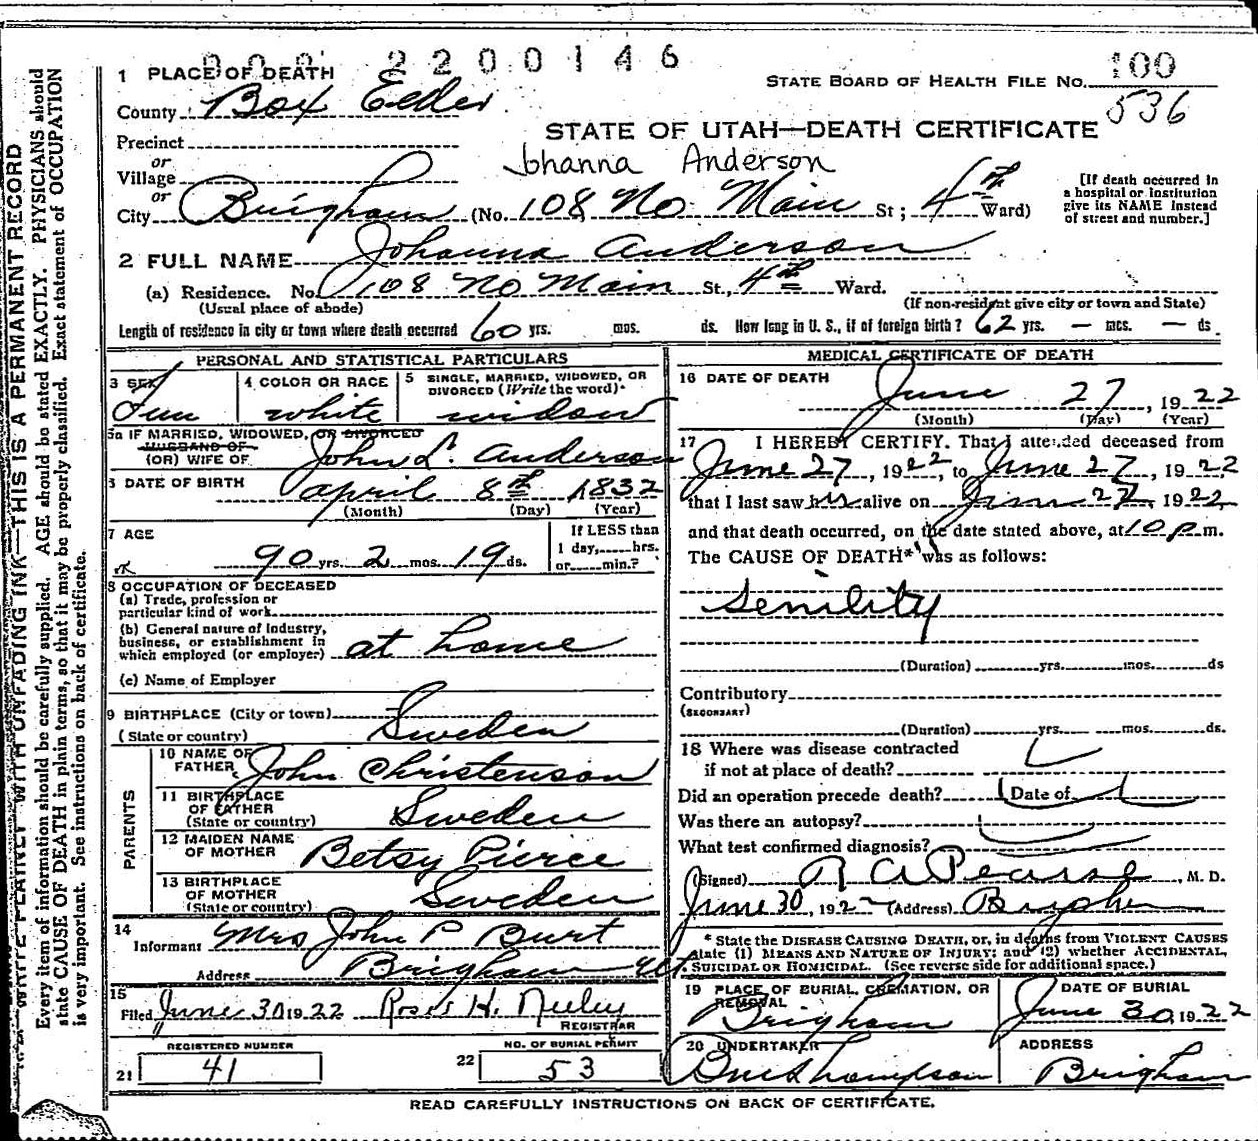 2200146
100
1 PLACE OF DEATH
STATE BOARD OF HEALTH FILE No.
County Box Elder
536
STATE OF UTAH—DEATH CERTIFICATE
Precinct
or
Johanna Anderson
Village
or
City Brigham (No. 108 No Main St; 4th Ward)
[If death occurred in a hospital or institution give its NAME instead of street and number.]
2 FULL NAME Johanna Anderson
(a) Residence. No. 108 No Main St., 4th Ward.
(Usual place of abode) (If non-resident give city or town and State)
Length of residence in city or town where death occurred 60 yrs. mos. ds. How long in U. S., if of foreign birth? 62 yrs. — mos. — ds.
PERSONAL AND STATISTICAL PARTICULARS
3 SEX Fem
4 COLOR OR RACE white
5 SINGLE, MARRIED, WIDOWED, OR DIVORCED (Write the word) widow
5a IF MARRIED, WIDOWED, OR DIVORCED
HUSBAND OF
(OR) WIFE OF John L. Anderson
6 DATE OF BIRTH April 8th 1832
(Month) (Day) (Year)
7 AGE
90 yrs. 2 mos. 19 ds.
If LESS than
1 day, hrs.
or min.?
8 OCCUPATION OF DECEASED
(a) Trade, profession or
particular kind of work
(b) General nature of industry,
business, or establishment in
which employed (or employer) at home
(c) Name of Employer
9 BIRTHPLACE (City or town)
(State or country) Sweden
PARENTS
10 NAME OF
FATHER John Christenson
11 BIRTHPLACE
OF FATHER
(State or country) Sweden
12 MAIDEN NAME
OF MOTHER Betsy Pierce
13 BIRTHPLACE
OF MOTHER
(State or country) Sweden
14
Informant Mrs John P Burt
Address Brigham Ut.
15
Filed June 30 1922 Rose H. Neeley
REGISTRAR
REGISTERED NUMBER
21 41
NO. OF BURIAL PERMIT
22 53
MEDICAL CERTIFICATE OF DEATH
16 DATE OF DEATH
June 27, 1922
(Month) (Day) (Year)
17 I HEREBY CERTIFY. That I attended deceased from
June 27, 1922, to June 27, 1922
that I last saw her alive on June 27, 1922
and that death occurred, on the date stated above, at 10 p.m.
The CAUSE OF DEATH* was as follows:
Senility
(Duration) yrs. mos. ds
Contributory
(SECONDARY)
(Duration) yrs. mos. ds.
18 Where was disease contracted
if not at place of death?
Did an operation precede death? Date of
Was there an autopsy?
What test confirmed diagnosis?
(Signed) R A Pearse, M. D.
June 30, 1922 (Address) Brigham
* State the DISEASE CAUSING DEATH, or, in deaths from VIOLENT CAUSES
state (1) MEANS AND NATURE OF INJURY; and (2) whether ACCIDENTAL,
SUICIDAL OR HOMICIDAL. (See reverse side for additional space.)
19 PLACE OF BURIAL, CREMATION, OR
REMOVAL
Brigham
DATE OF BURIAL
June 30, 1922
20 UNDERTAKER
ADDRESS
Brigham
READ CAREFULLY INSTRUCTIONS ON BACK OF CERTIFICATE.
WRITE PLAINLY WITH UNFADING INK—THIS IS A PERMANENT RECORD
Every item of information should be carefully supplied. AGE should be stated EXACTLY. PHYSICIANS should
state CAUSE OF DEATH in plain terms, so that it may be properly classified. Exact statement of OCCUPATION
is very important. See instructions on back of certificate.